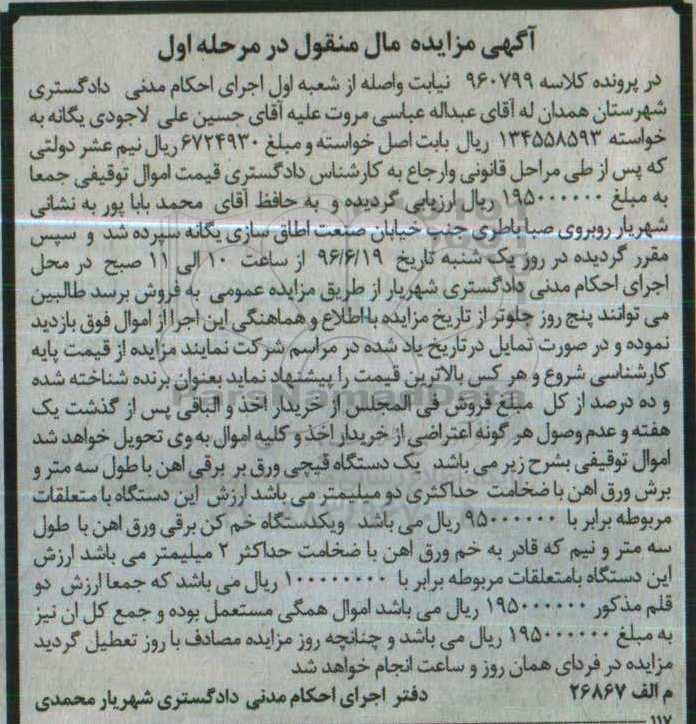 آگهی مزایده مال منقول در مرحله اول
در پرونده کلاسه ۹۶۰۷۹۹ نیابت واصله از شعبه اول اجرای احکام مدنی دادگستری
شهرستان همدان له آقای عبداله عباسی مروت علیه آقای حسین علی لاجودی یگانه به
خواسته ۱۳۴۵۵۸۵۹۳ ریال بابت اصل خواسته و مبلغ ۶۷۲۴۹۳۰ ریال نیم عشر دولتی
که پس از طی مراحل قانونی وارجاع به کارشناس دادگستری قیمت اموال توقیفی جمعا
به مبلغ ۱۹۵۰۰۰۰۰۰ ریال ارزیابی گردیده و به حافظ آقای محمد بابا پور به نشانی
شهریار روبروی صبا باطری جنب خیابان صنعت اطاق سازی یگانه سپرده شد و سپس
مقرر گردیده در روز یک شنبه تاریخ ۹۶/۶/۱۹ از ساعت ۱۰ الی ۱۱ صبح در محل
اجرای احکام مدنی دادگستری شهریار از طریق مزایده عمومی به فروش برسد طالبین
می توانند پنج روز جلوتر از تاریخ مزایده با اطلاع و هماهنگی این اجرا از اموال فوق بازدید
نموده و در صورت تمایل درتاریخ یاد شده در مراسم شرکت نمایند مزایده از قیمت پایه
کارشناسی شروع و هر کس بالاترین قیمت را پیشنهاد نماید بعنوان برنده شناخته شده
و ده درصد از کل مبلغ فروش فی المجلس از خریدار اخذ و الباقی پس از گذشت یک
هفته و عدم وصول هر گونه اعتراضی از خریدار اخذ و کلیه اموال به وی تحویل خواهد شد
اموال توقیفی بشرح زیر می باشد یک دستگاه قیچی ورق بر برقی اهن با طول سه متر و
برش ورق اهن با ضخامت حداکثری دو میلیمتر می باشد ارزش این دستگاه با متعلقات
مربوطه برابر با ۹۵۰۰۰۰۰۰ ریال می باشد ویکدستگاه خم کن برقی ورق اهن با طول
سه متر و نیم که قادر به خم ورق اهن با ضخامت حداکثر ۲ میلیمتر می باشد ارزش
این دستگاه بامتعلقات مربوطه برابر با ۱۰۰۰۰۰۰۰۰ ریال می باشد که جمعا ارزش دو
قلم مذکور ۱۹۵۰۰۰۰۰۰ ریال می باشد اموال همگی مستعمل بوده و جمع کل ان نیز
به مبلغ ۱۹۵۰۰۰۰۰۰ ریال می باشد و چنانچه روز مزایده مصادف با روز تعطیل گردید
مزایده در فردای همان روز و ساعت انجام خواهد شد
م الف ۲۶۸۶۷ دفتر اجرای احکام مدنی دادگستری شهریار محمدی
۱۱۷
ParsNamadData